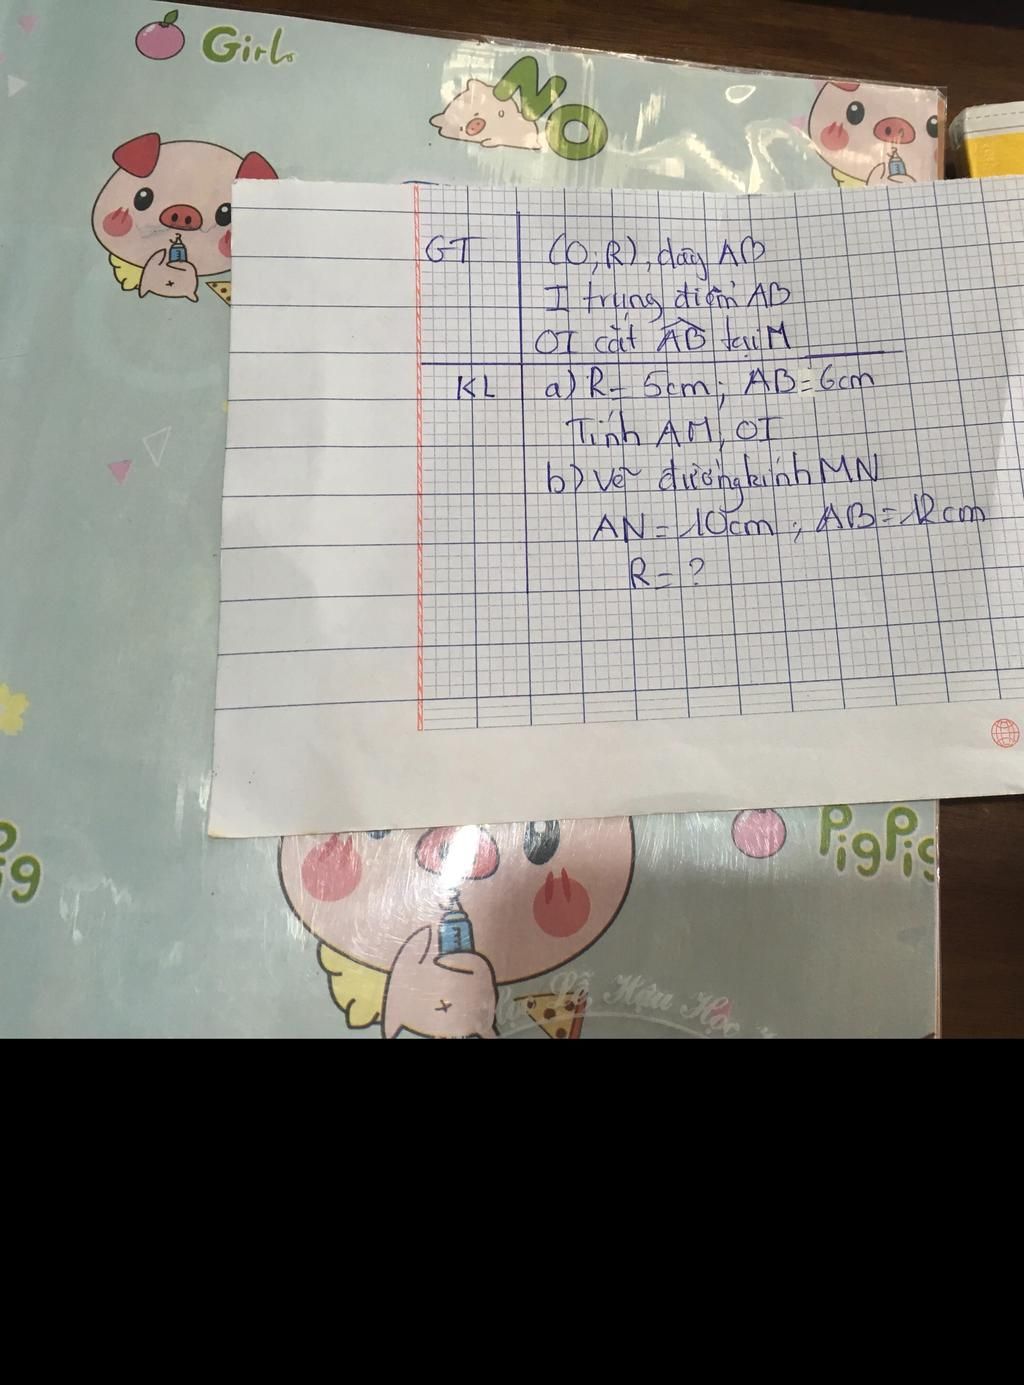 Girl
NO
GT
(O,R), dây AB
I trung điểm AB
OI cắt AB tại M
KL
a) R = 5cm; AB = 6cm
Tính AM, OI
b) Vẽ đường kính MN
AN = 10cm; AB = 12cm
R = ?
PigPig
Lễ, Hậu Học